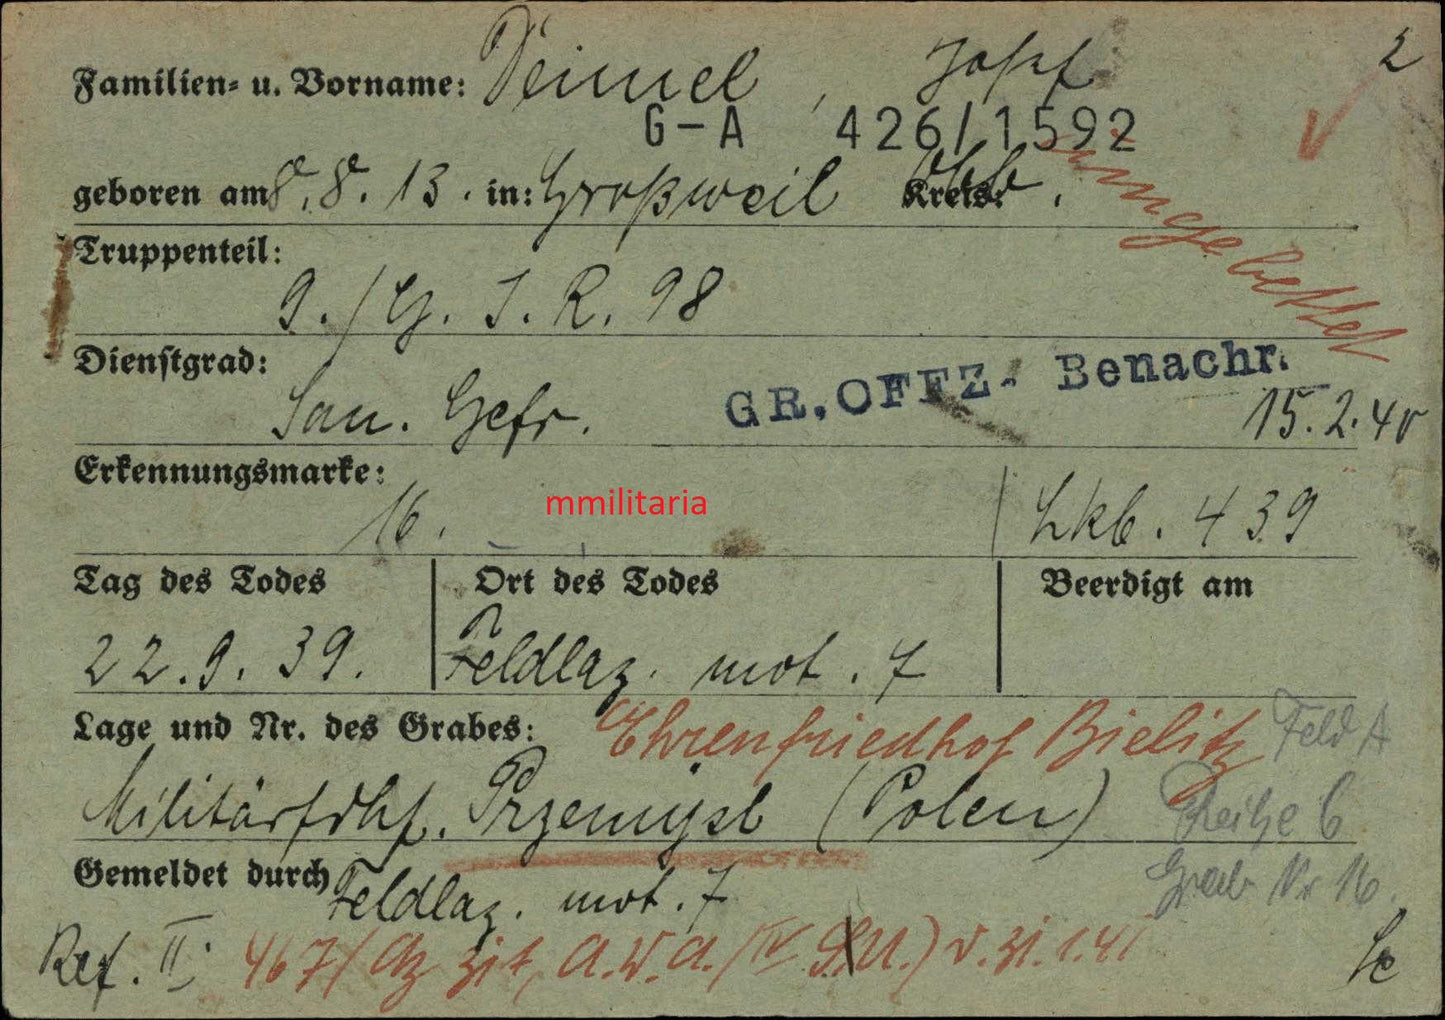 2
Familien- u. Vorname: Deimel, Josef
G-A 426/1592
geboren am 8.8.13. in: Großweil Kreis: Obb.
umgebettet
Truppenteil:
9./G.I.R. 98
Dienstgrad:
San. Gefr.
GR.OFFZ- Benachr.
15.2.40
Erkennungsmarke:
16.
mmilitaria
439
Tag des Todes Ort des Todes Beerdigt am
22.9.39. Feldlaz. mot. 7
Lage und Nr. des Grabes: Ehrenfriedhof Bielitz Feld A
Militärfdhf. Przemysl (Polen) Reihe 6
Grab Nr 16.
Gemeldet durch Feldlaz. mot. 7
Ref. II: 467/ A.W.A./ v. 31.1.41